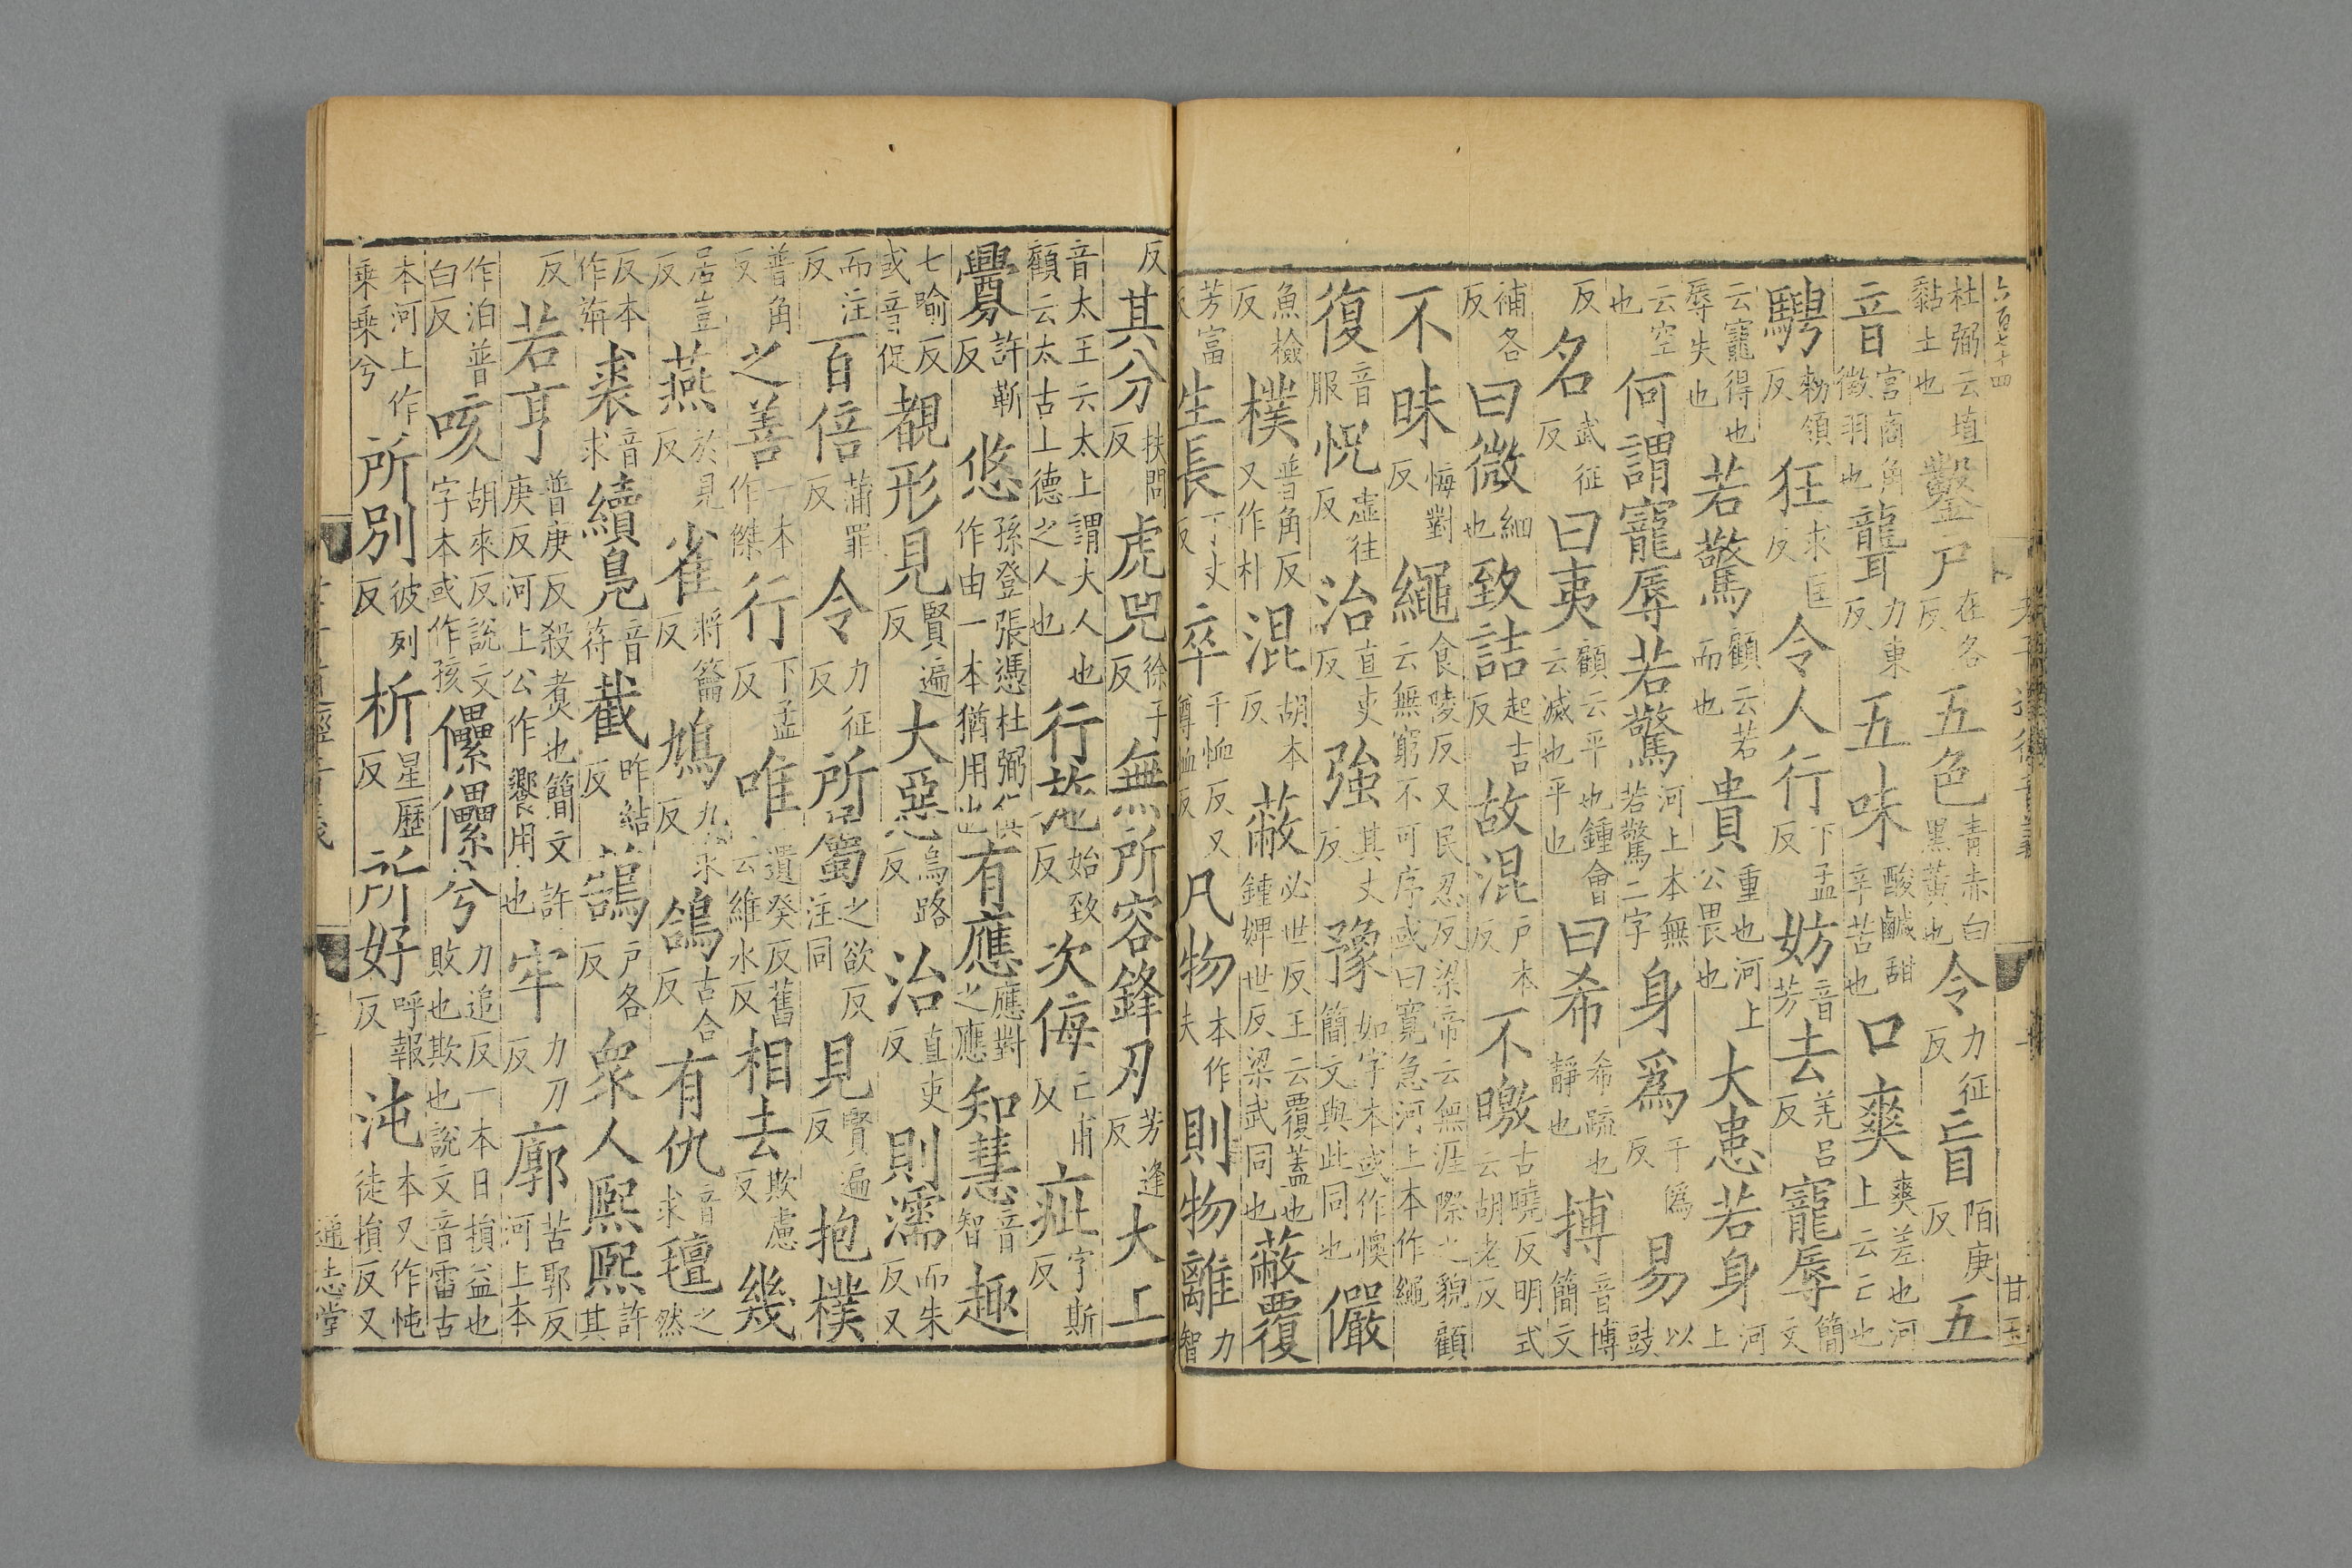 六百七十四 甘玉
杜弼云埴黏土也 鑿戶在各反 五色青赤白黑黃也 令力征反 盲陌庚反 五
音宮商角徵羽也 聾力東反 五味酸鹹甜辛苦也 口爽爽差也河上云亡也
騁勑領反 狂求匡反 令人行下孟反 妨音芳 去羌呂反 寵辱簡文
云寵得也辱失也 若驚顧云若而也 貴重也河上公畏也 大患若身河上
云空也 何謂寵辱若驚河上本無若驚二字 身爲于僞反 易以豉
反 名武征反 曰夷顧云平也鍾會云滅也平也 曰希希疏也靜也 搏音博簡文
補各反 曰微細也 致詰起吉反 故混戶本反 不曒古曉反明式云胡老反
不昧悔對反 繩食陵反又民忍反梁帝云無涯際之貌顧云無窮不可序或曰寬急河上本作繩
復音服 怳虛往反 治直吏反 強其丈反 豫如字本或作懊簡文與此同也 儼
魚檢反 樸普角反又作朴 混胡本反 蔽必世反王云覆蓋也鍾婢世反梁武同也 蔽覆
芳富反 生長丁丈反 卒千恤反又罇恤反 凡物本作夫 則物離力智
反 其分扶問反 虎兕徐子反 無所容鋒刃芳逢反 大上
音太王云太上謂大人也顧云太古上德之人也 行施始致反 次侮亡甫反 疵字斯反
釁許靳反 悠孫登張憑杜弼俱作由一本猶用也 有應應對之應 知慧音智 趣
七喻反或音促 覩形見賢遍反 大惡烏路反 治直吏反 則濡而朱反又
而注反 百倍蒲罪反 令力征反 所屬之欲反注同 見賢遍反 抱樸
普角反 之善一本作傑 行下孟反 唯遺癸反舊云維水反 相去欺慮反 幾
居豈反 燕於見反 雀將籥反 鳩九求反 鴿古合反 有仇音求 氊之然
反本作旃 裘音求 續鳧音符 截昨結反 鵠戶各反 衆人熙熙許其
反 若亨普庚反殺煑也簡文許庚反河上公作饗用也 牢力刀反 廓苦郭反河上本
作泊普白反 咳胡來反說文字本或作孩 儽儽兮力追反一本曰損益也敗也欺也說文音雷古
本河上作乘乘兮 所別彼列反 析星歷反 所好呼報反 沌本又作忳徒損反又
通志堂